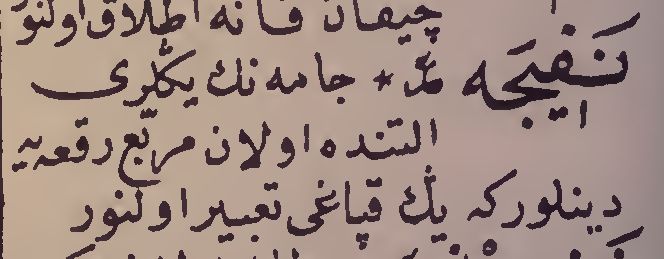 چیقان قانه اطلاق اولنور
نَفِيجَه عر * جامه نك يڭلرى
التنده اولان مربّع رقعه يه
دينلوركه يڭ قپاغى تعبير اولنور